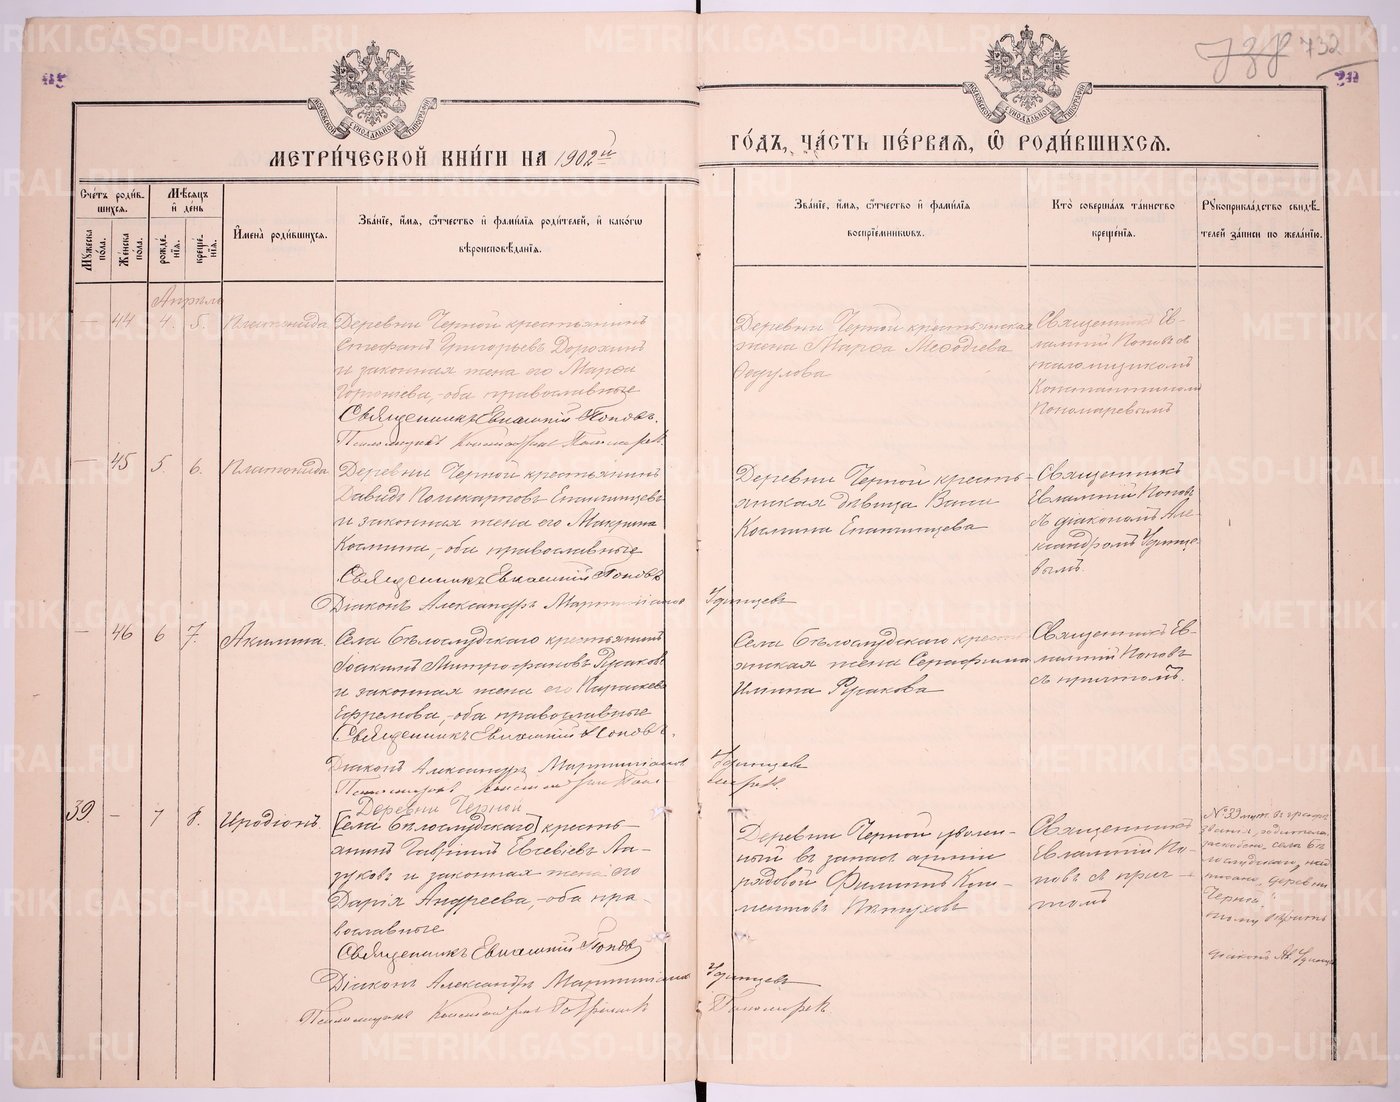 732
МЕТРИ́ЧЕСКОЙ КНИ́ГИ НА 1902й
ГО́ДЪ, ЧА́СТЬ ПЕ́РВАЯ, Ѡ҆ РОДИ́ВШИХСЯ.
Сче́тъ роди́вшихся.
Мꙋ́жеска по́ла.
Же́нска по́ла.
Мѣ́сяцъ и҆ де́нь
рожде́нїя.
креще́нїя.
И҆мена̀ роди́вшихся.
Зва́нїе, и҆́мя, ѻ҆́тчество и҆ фами́лїя роди́телей, и҆ како́гѡ
вѣроисповѣ́данїя.
Зва́нїе, и҆́мя, ѻ҆́тчество и҆ фами́лїя
воспрїе́мниковъ.
Кто̀ соверша́лъ та́инство
креще́нїя.
Рꙋкоприкла́дство свидѣ́телей за́писи по жела́нїю.
Апрѣль
— 44 4. 5. Платонида
Деревни Черной крестьянинъ
Стефанъ Григорьевъ Дорохинъ
и законная жена его Марѳа
оба православные
Священникъ Евлампій Поповъ.
Псаломщикъ
Деревни Черной крестьянская
жена Марѳа Меѳодіева
Ѳедулова
Священникъ Ев-
лампій Поповъ съ
псаломщикомъ
Константиномъ
Пономаревымъ
— 45 5. 6. Платонида
Деревни Черной крестьянинъ
Давидъ Поликарповъ Епанчинцевъ
и законная жена его Макрина
Косьмина, оба православные
Священникъ Евлампій Поповъ
Діаконъ Александръ Мартиніановъ Удинцевъ
Деревни Черной кресть-
янская дѣвица Васса
Космина Епанчинцева
Священникъ
Евлампій Поповъ
съ діакономъ Але-
ксандромъ Удинце-
вымъ.
— 46 6 7. Акилина.
Села Бѣлослудскаго крестьянинъ
Іоакимъ Митрофановъ Русаковъ
и законная жена его Параскева
Ефремова, оба православные
Священникъ Евлампій Поповъ.
Діаконъ Александръ Мартиніановъ Удинцевъ
Псаломщикъ
Села Бѣлослудскаго кресть-
янская жена Серафима
Илиина Русакова
Священникъ Ев-
лампій Поповъ
съ причтомъ.
39 — 7 8. Иродіонъ.
Деревни Черной
[Села Бѣлослудскаго] кресть-
янинъ Гавріилъ Евсевіевъ Ла-
зуковъ и законная жена его
Дарія Андреева, оба пра-
вославные
Священникъ Евлампій Поповъ
Діаконъ Александръ Мартиніановъ Удинцевъ
Псаломщикъ
Деревни Черной уволен-
ный въ запасъ арміи
рядовой Филиппъ Кли-
ментовъ Пѣтуховъ
Священникъ
Евлампій По-
повъ съ прич-
томъ
№ 39 въ графѣ
званія родителей
зачеркнуто села Бѣ-
лослудскаго, на-
писано „деревни
Черной."
діаконъ Ал. Удинцевъ
METRIKI.GASO-URAL.RU